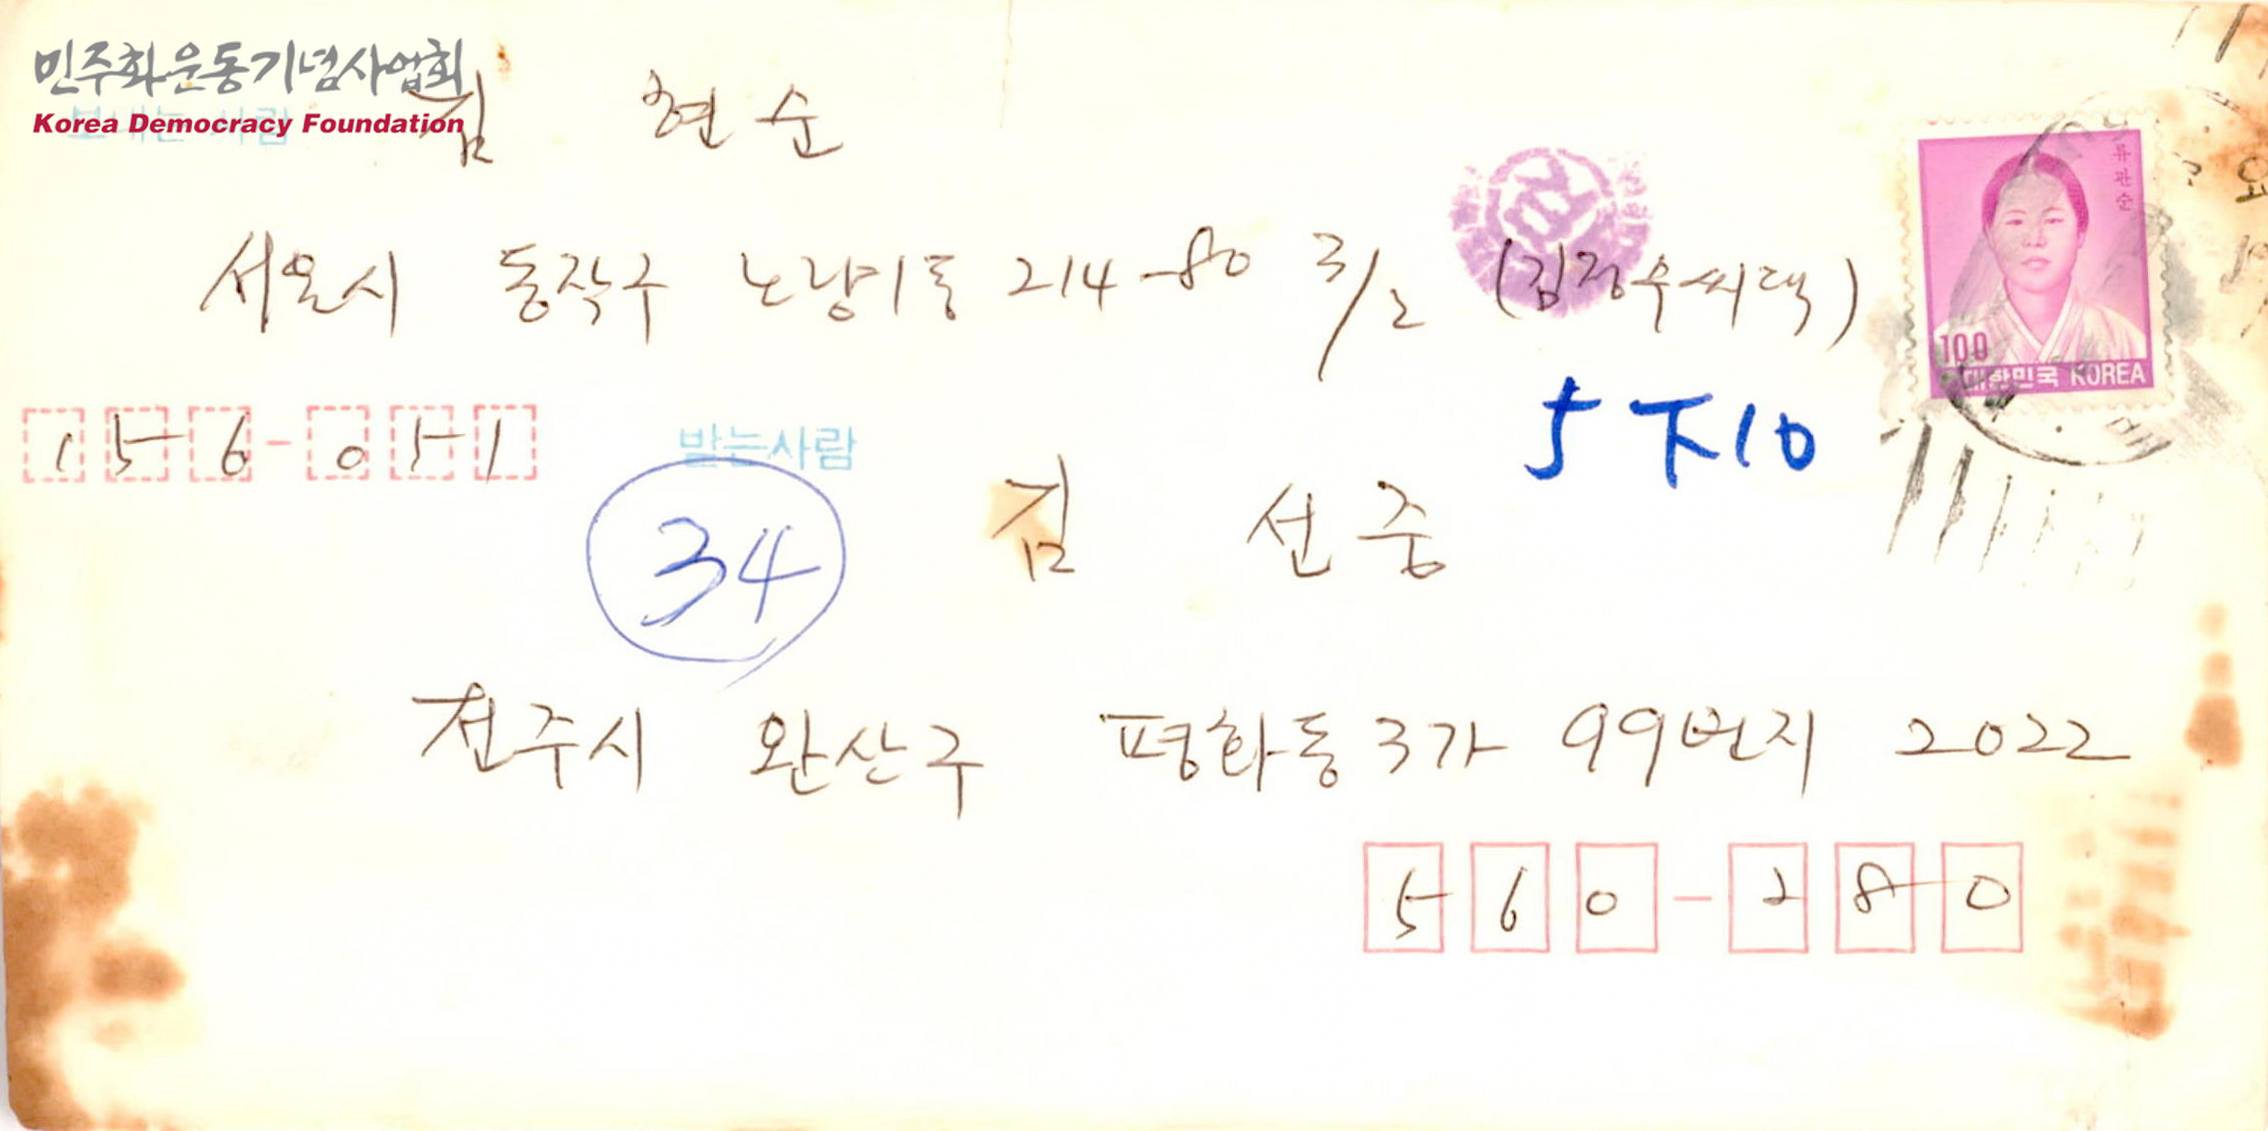 민주화운동기념사업회
Korea Democracy Foundation
보내는 사람
김 현순
서울시 동작구 노량1동 214-80 3/2 (김정우씨댁)
류관순
100
대한민국 KOREA
156-051
받는사람
5下10
34
김 선중
전주시 완산구 평화동3가 99번지 2022
560-280